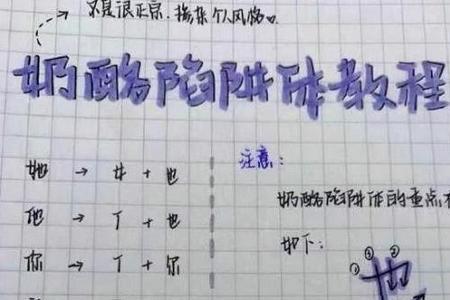 不是很正宗,掺杂个人风格。
奶酪陷阱体教程
她 → 女 + 也
他 → 亻 + 也
你 → 亻 + 尔
注意:
奶酪陷阱体的重点
如下:
① ②
③ 也